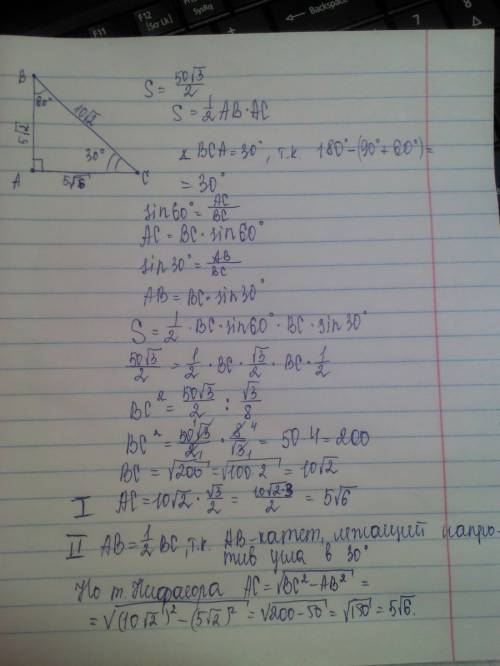 F11
F12
PrtSc
(Scr Lk)
SysRq
Backspace
7
8
B
60°
10√2
5√2
30°
A
5√6
C
S = 50√3/2
S = 1/2 AB · AC
∠ BCA = 30°, т.к. 180° - (90° + 60°) =
= 30°
sin 60° = AC/BC
AC = BC · sin 60°
sin 30° = AB/BC
AB = BC · sin 30°
S = 1/2 · BC · sin 60° · BC · sin 30°
50√3/2 = 1/2 · BC · √3/2 · BC · 1/2
BC² = 50√3/2 : √3/8
BC² = 50√3/2 · 8/√3 = 50·4 = 200
BC = √200 = √100·2 = 10√2
I AC = 10√2 · √3/2 = 10√2·3/2 = 5√6
II AB = 1/2 BC, т.к. AB-катет, лежащий напро-
тив угла в 30°
По т. Пифагора AC = √BC² - AB² =
= √(10√2)² - (5√2)² = √200 - 50 = √150 = 5√6.